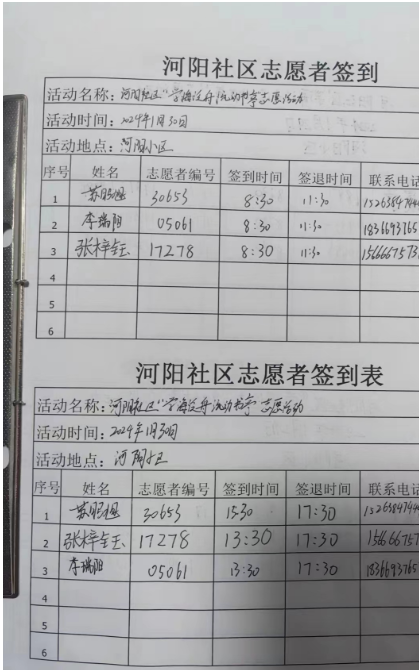 河阳社区志愿者签到
活动名称：河阳社区"学海泛舟流动书亭志愿活动
活动时间：2024年1月30日
活动地点：河阳小区
序号 姓名 志愿者编号 签到时间 签退时间 联系电话
1 30653 8:30 11:30
2 李瑞阳 05061 8:30 11:30 18366937651
3 张梓钰 17278 8:30 11:30
4
5
6
河阳社区志愿者签到表
活动名称：河阳社区"学海泛舟流动书亭志愿活动
活动时间：2024年1月30日
活动地点：河阳小区
序号 姓名 志愿者编号 签到时间 签退时间 联系电话
1 30653 17:30
2 张梓钰 17278 13:30 17:30
3 李瑞阳 05061 13:30 17:30
4
5
6